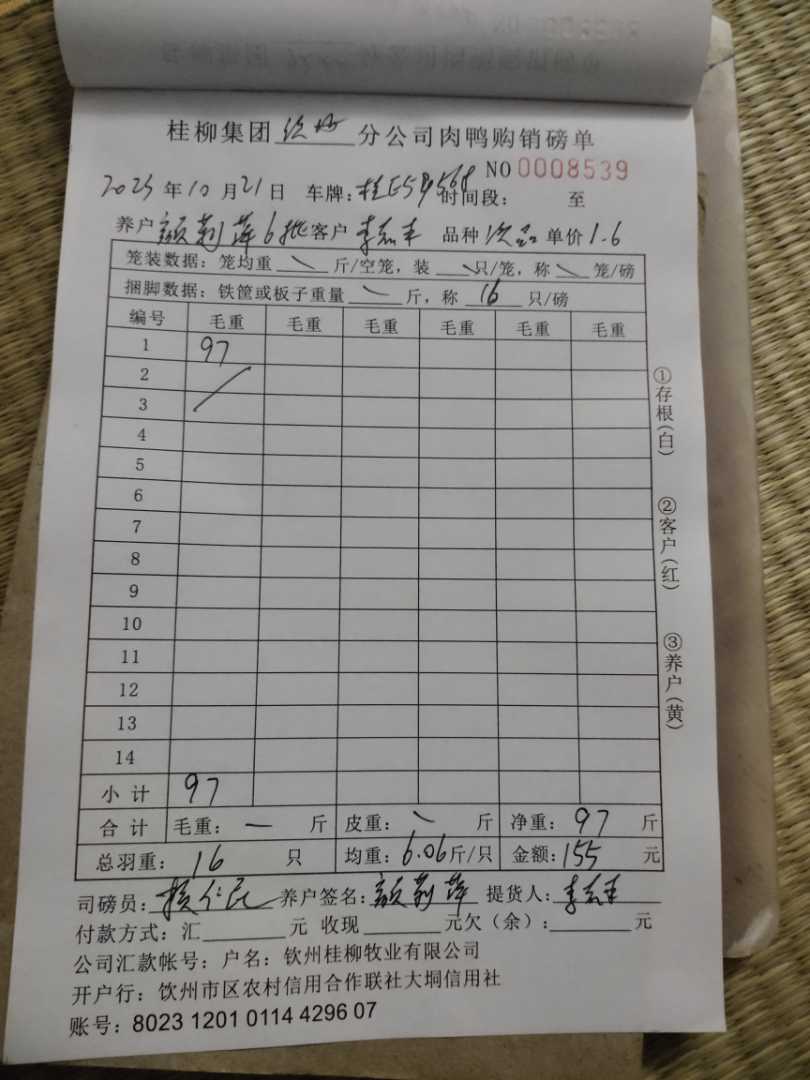 桂柳集团 分公司肉鸭购销磅单
NO 0008539
2023年10月21日 车牌: 时间段: 至
养户 莉萍6批 客户 李 品种 次品 单价1.6
笼装数据:笼均重 \ 斤/空笼,装 \ 只/笼,称 \ 笼/磅
捆脚数据:铁筐或板子重量 \ 斤,称 16 只/磅
编号 毛重 毛重 毛重 毛重 毛重 毛重
1 97
2
3
4
5
6
7
8
9
10
11
12
13
14
小计 97
合计 毛重: — 斤 皮重: \ 斤 净重: 97 斤
总羽重: 16 只 均重: 6.06斤/只 金额: 155 元
司磅员: 养户签名: 莉萍 提货人: 李
付款方式:汇 元 收现 元欠(余): 元
公司汇款帐号:户名:钦州桂柳牧业有限公司
开户行:钦州市区农村信用合作联社大垌信用社
账号:8023 1201 0114 4296 07
①存根(白)
②客户(红)
③养户(黄)